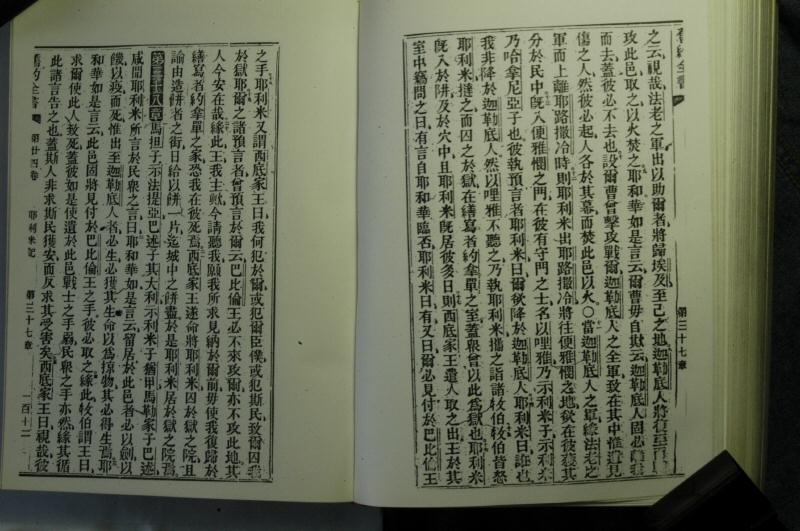 舊約全書
之云視哉法老之軍出以助爾者將歸埃及至己之地迦勒底人將復至而
攻此邑取之以火焚之耶和華如是言云爾曹毋自欺云迦勒底人固必離我
而去蓋彼必不去也設爾曹曾擊攻戰爾迦勒底人之全軍致在其中惟遺見
傷之人然彼必起人各於其幕而焚此邑以火○當迦勒底人之軍緣法老之
軍而上離耶路撒冷時則耶利米出耶路撒冷將往便雅憫之地欲在彼
分於民中旣入便雅憫之門在彼有守門之士名以哩雅乃示利米子
乃哈拿尼亞子也彼執預言者耶利米曰爾欲降於迦勒底人耶利米曰誑也
我非降於迦勒底人然以哩雅不聽之乃執耶利米攜之詣諸牧伯牧伯皆怒
耶利米撻之而囚之於獄在繕寫者約拿單之室蓋衆曾以此爲獄也耶利米
旣入於阱及於穴中且耶利米旣居彼多日則西底家王遣人取之出王於其
室中竊問之曰有言自耶和華臨否耶利米曰有又曰爾必見付於巴比倫王
第三十七章
之手耶利米又謂西底家王曰我何犯於爾或犯爾臣僕或犯斯民致爾囚我
於獄耶爾之諸預言者曾預言於爾云巴比倫王必不來攻爾亦不攻此地其
人今安在哉緣此王我主歟今請聽我願我所求見納於爾前毋使我復歸於
繕寫者約拿單之家恐我在彼死焉西底家王遂命將耶利米囚於獄之院且
諭由造餅者之街日給以餅一片迄城中之餅盡於是耶利米居於獄之院焉
第三十八章馬担子示法提亞巴述子其大利示利米子猶甲馬勒家子巴述
咸聞耶利米所言於民衆之言曰耶和華如是言云留居於此邑者必以劍以
饑以疫而死惟出至迦勒底人者必生必獲其生命以爲掠物其必得生焉耶
和華如是言云此邑固將見付於巴比倫王之手彼必取之緣此牧伯謂王曰
求爾使此人致死蓋彼如是使遺於此邑戰士之手弱民衆之手亦然緣其循
此諸言告之也蓋斯人非求斯民獲安而反求其受害矣西底家王曰視哉彼
舊約全書 第廿四卷 耶利米記 第三十七章 一百十二